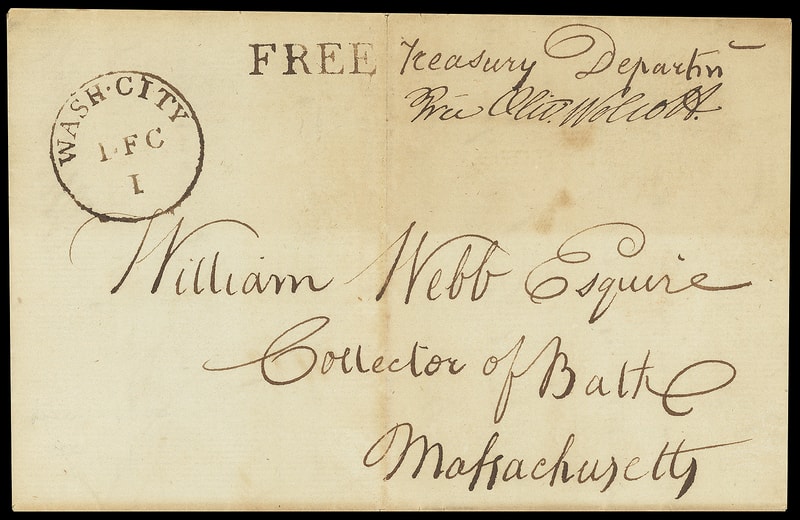 FREE Treasury Departm
Free Oliv. Wolcott.
WASH·CITY
DEC
1
William Webb Esquire
Collector of Bath
Maſsachusetts